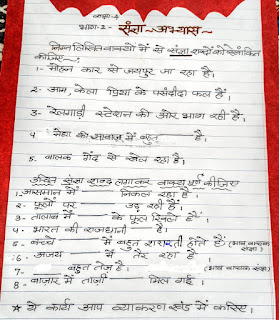 कक्षा-4
भाग-2 - संज्ञा - अभ्यास -
निम्न लिखित वाक्यो में से संज्ञा शब्दों को रेखांकित
कीजिए -
1- मोहन कार से जयपुर जा रहा है।
2- आम, केला प्रिया के पसंदीदा फल हैं।
3- रेलगाड़ी स्टेशन की ओर भाग रही है।
4 की आवाज़ में बहुत है।
5. बालक गेंद से खेल रहा है।
उचित संज्ञा शब्द लगाकर वाक्य पूर्ण कीजिए
1. आसमान में ______ निकल रहा है।
2- फूलों पर ______ उड़ रही हैं।
3- तालाब में ______ के फूल खिले हैं।
4- भारत की राजधानी ______ है।
5- बच्चे ______ में बहुत शरारती होते हैं (भाव वाचक संज्ञा)
6- अजय ______ में तैर रहा है
7- ______ बहुत तेज है। (भाव वाचक संज्ञा)
8- बाज़ार में ताज़ी ______ मिल गई।
* ये कार्य आप व्याकरण खंड में करिए।